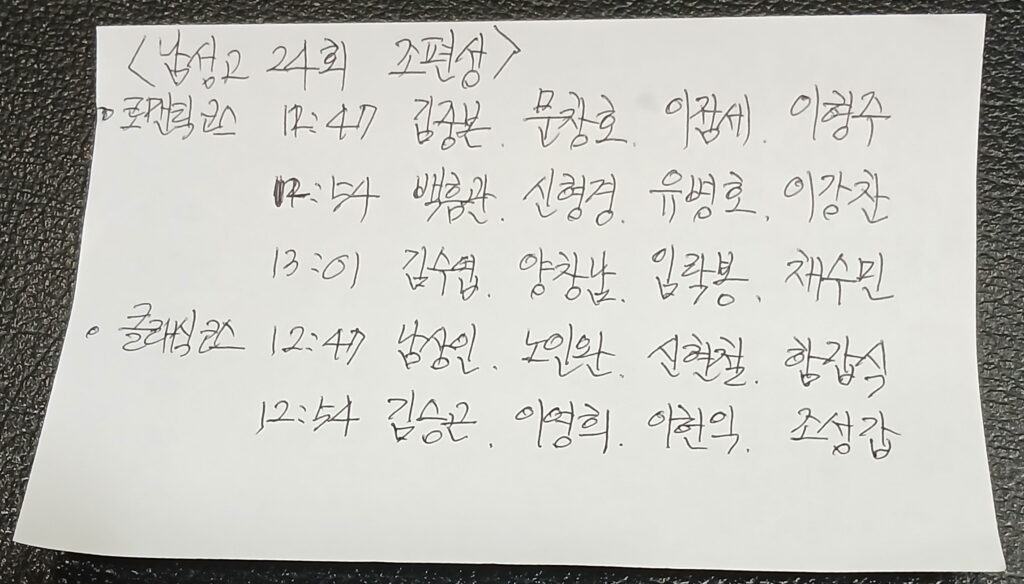 <남성고 24회 조편성>
○ 로맨틱코스 12:47 김종본. 문창호. 이잠세. 이형주
12:54 백흠관. 신형경. 유병호. 이강찬
13:01 김수엽. 양창남. 임락봉. 채수민
○ 클래식코스 12:47 남상인. 노인완. 신현철. 함갑식
12:54 김승근. 이영희. 이헌익. 조성갑